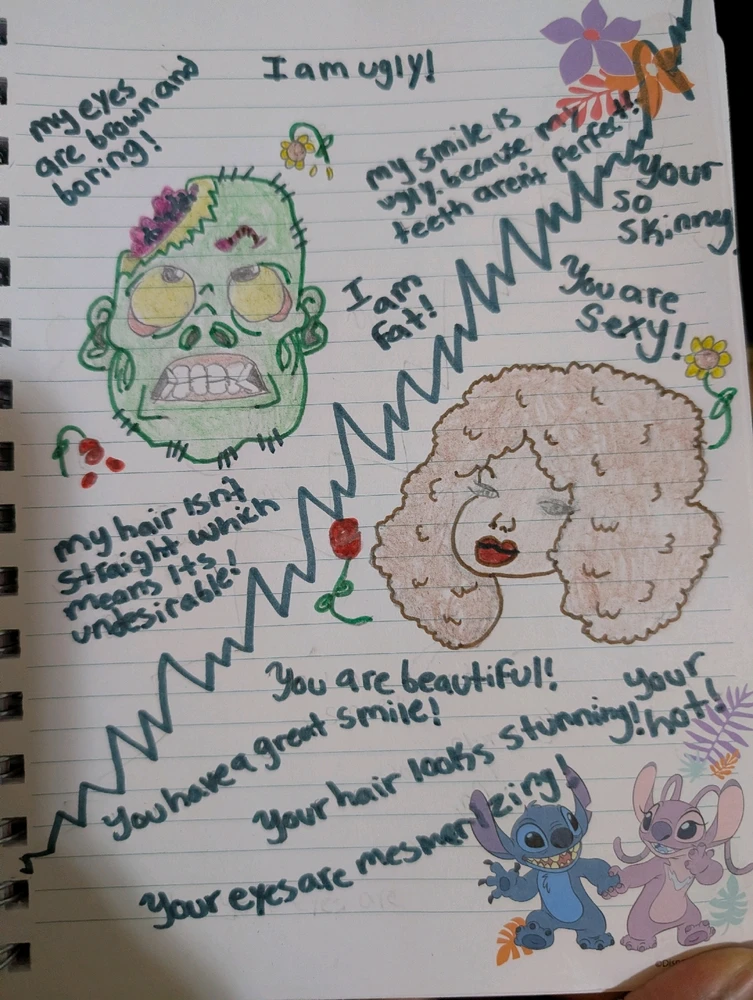 I am ugly!
my eyes
are brown and
boring!
my smile is
ugly. because my
teeth aren't perfect!
Your
so
Skinny
I am
fat!
You are
Sexy!
my hair isn't
straight which
means its
undesirable!
You are beautiful!
You have a great smile!
Your hair looks stunning!
Your
hot!
Your eyes are mesmerizing!